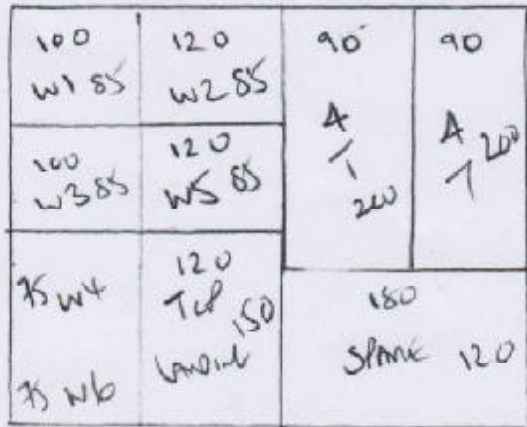 100
W1 85
120
W2 85
90
A
1
200
90
A
7
200
100
W3 85
120
W5 85
75 W4
75 W6
120
TOP
150
LANDING
180
SPARE 120